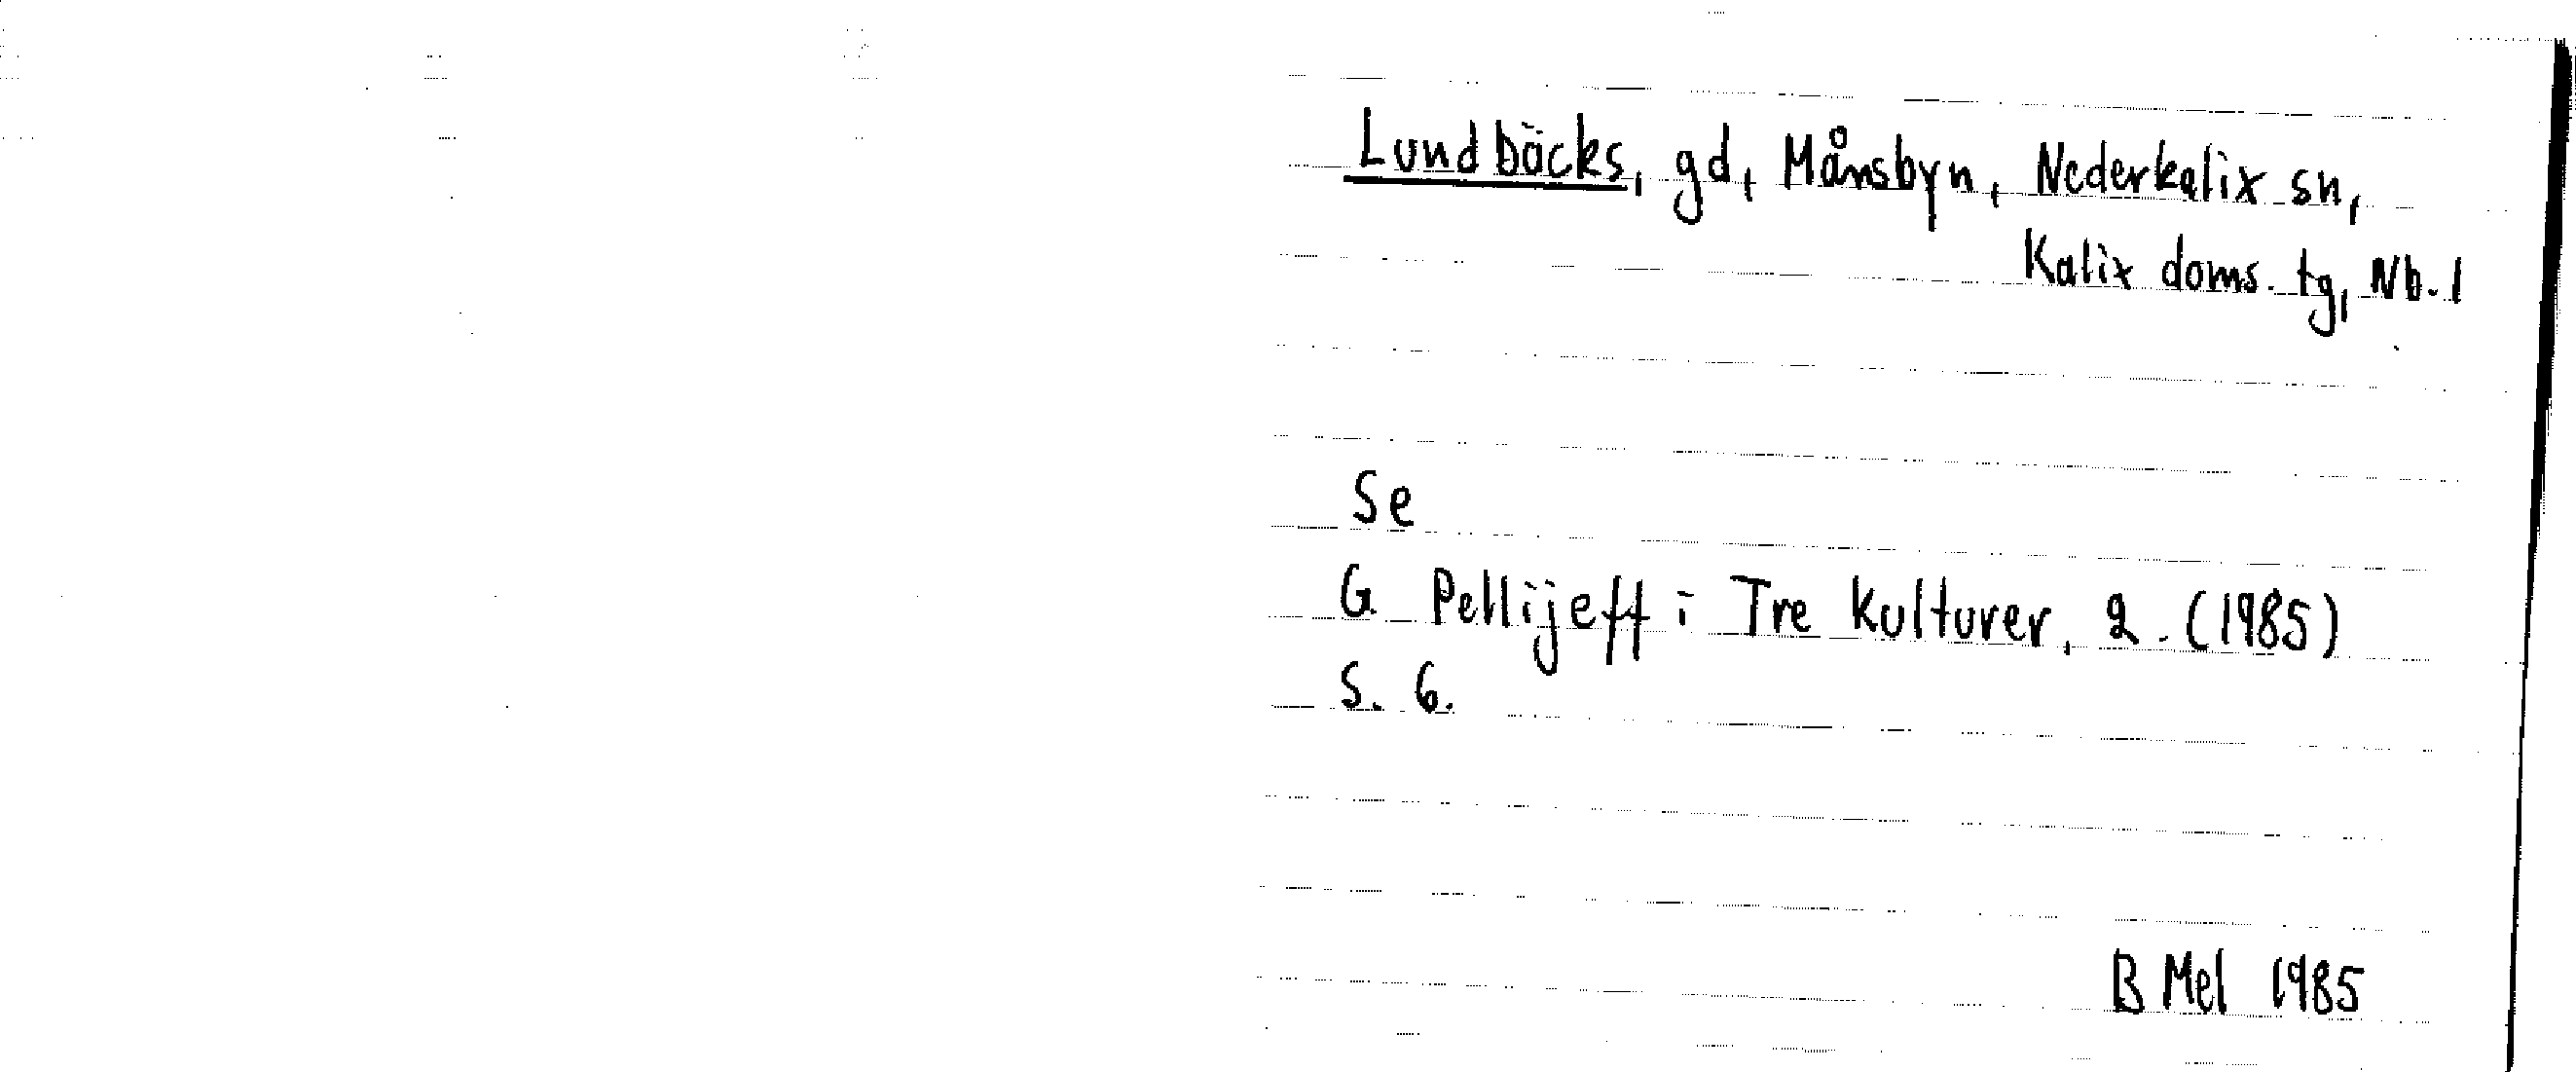 Lundbäcks, gd, Månsbyn, Nederkalix sn,
Kalix doms. tg, Nb. l
Se
G Pellijeff i Tre kulturer, 2. (1985)
S. 6.
B Mel 1985